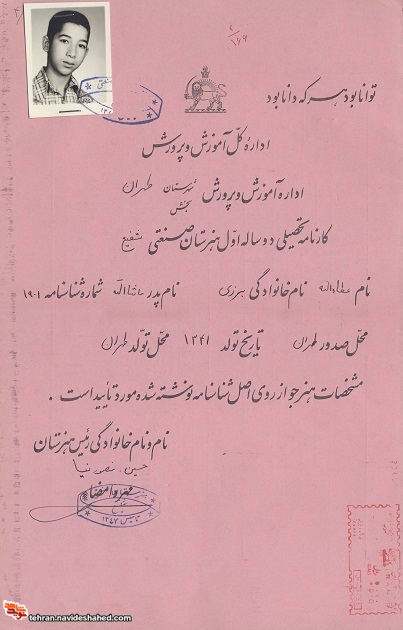 ۴
۱۶۴
توانا بود هر که دانا بود
ادارهٔ کل آموزش و پرورش
ادارهٔ آموزش و پرورش شهرستان طهران
بخش
کارنامه تحصیلی دو ساله اول هنرستان صنعتی شفیع
نام عطاءالله نام خانوادگی نام پدر ماشاالله شماره شناسنامه ۱۹۰۱
محل صدور طهران تاریخ تولد ۱۳۴۱ محل تولد طهران
مشخصات هنرجو از روی اصل شناسنامه نوشته شده مورد تأیید است .
نام و نام خانوادگی رئیس هنرستان
حسین نصرنیا
مهر و امضاء
تأسیس ۱۳۴۷
tehran.navideshahed.com